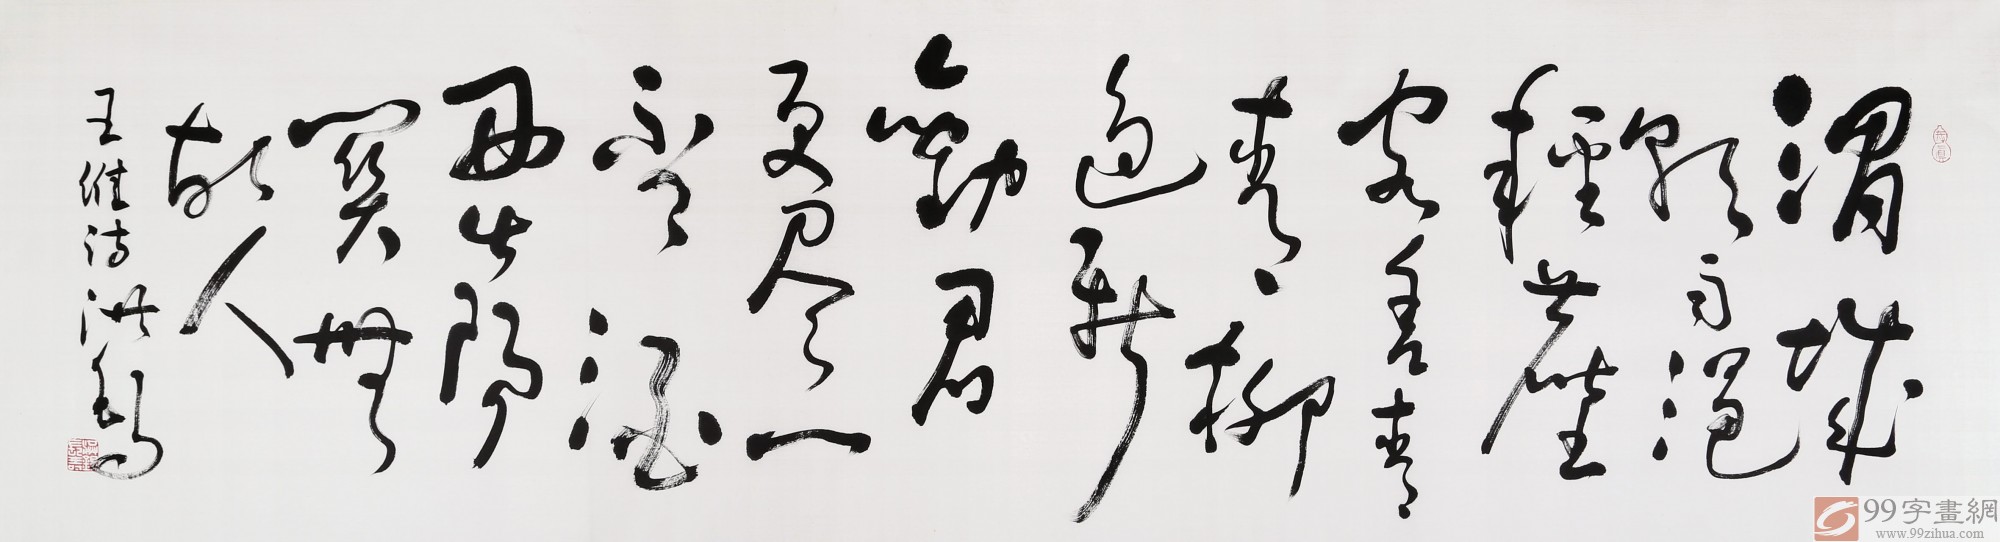 渭城
朝雨浥
輕塵
客舍青
青柳
色新
勸君
更尽一
盃酒
西出陽
關無
故人
王維詩 洪
99字畫網
www.99zihua.com